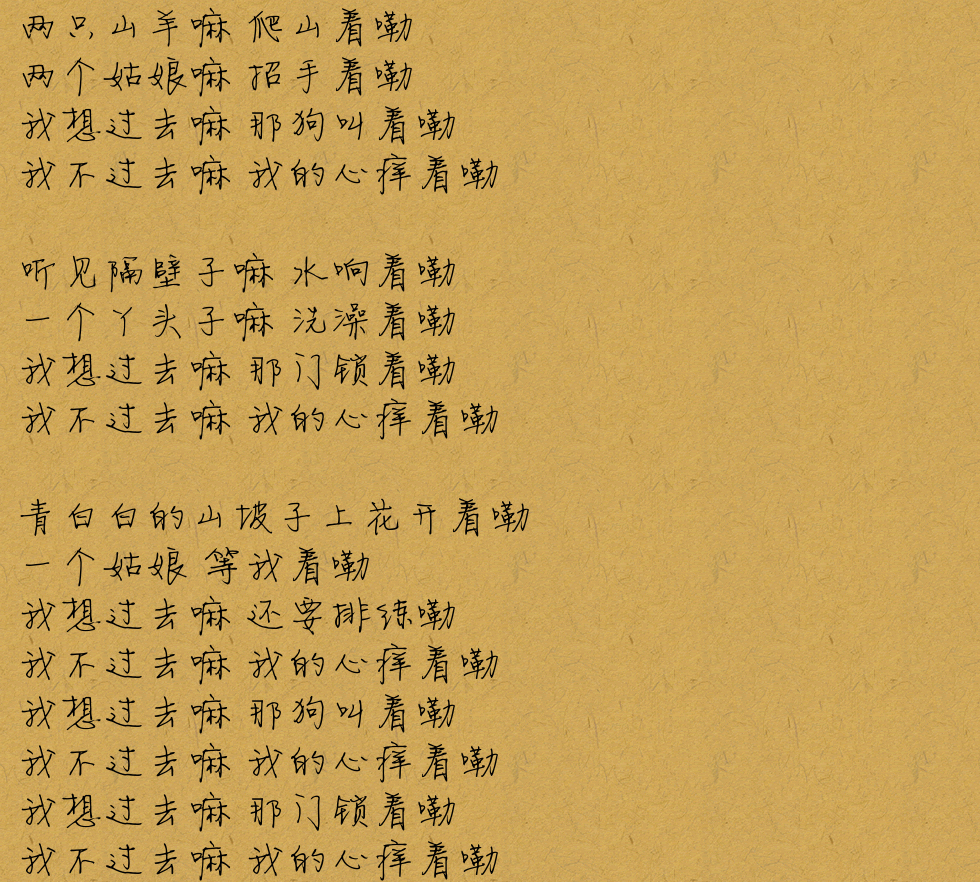 两只山羊嘛 爬山着嘞
两个姑娘嘛 招手着嘞
我想过去嘛 那狗叫着嘞
我不过去嘛 我的心痒着嘞
听见隔壁子嘛 水响着嘞
一个丫头子嘛 洗澡着嘞
我想过去嘛 那门锁着嘞
我不过去嘛 我的心痒着嘞
青白白的山坡子上花开着嘞
一个姑娘 等我着嘞
我想过去嘛 还要排练嘞
我不过去嘛 我的心痒着嘞
我想过去嘛 那狗叫着嘞
我不过去嘛 我的心痒着嘞
我想过去嘛 那门锁着嘞
我不过去嘛 我的心痒着嘞